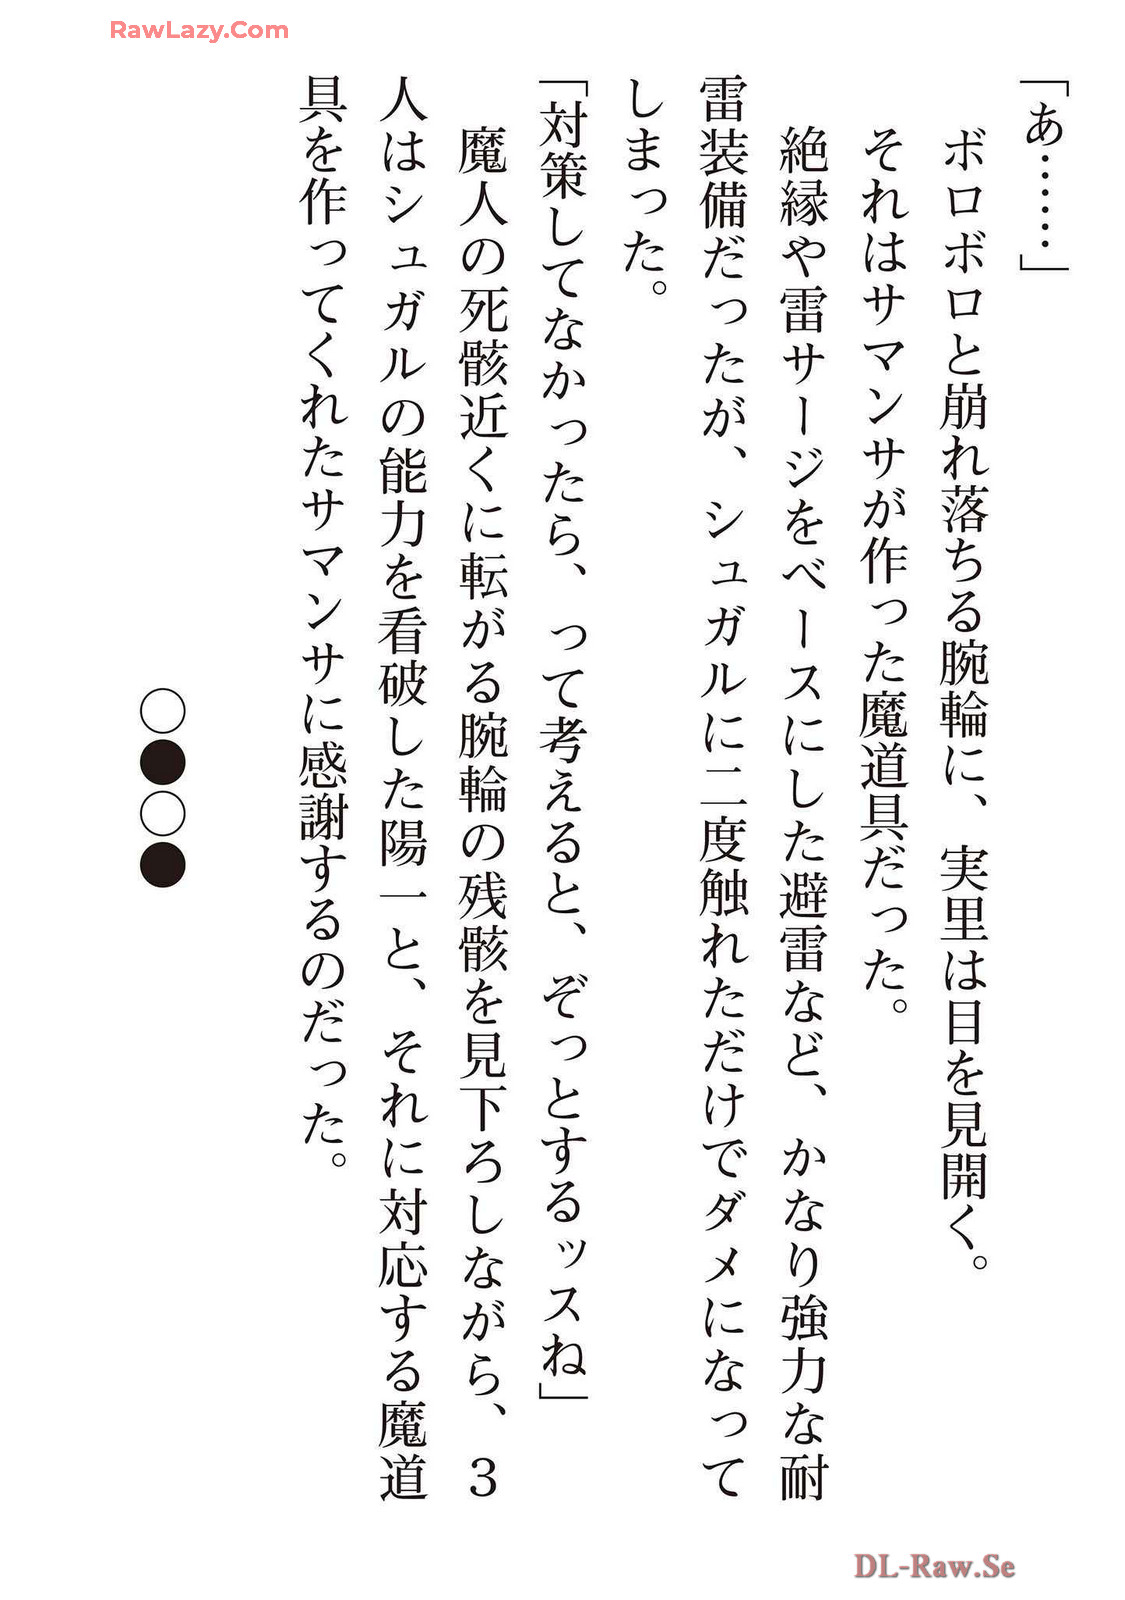 RawLazy.Com
「あ……」
ボロボロと崩れ落ちる腕輪に、実里は目を見開く。
それはサマンサが作った魔道具だった。
絶縁や雷サージをベースにした避雷など、かなり強力な耐
雷装備だったが、シュガルに二度触れただけでダメになって
しまった。
「対策してなかったら、って考えると、ぞっとするッスね」
魔人の死骸近くに転がる腕輪の残骸を見下ろしながら、３
人はシュガルの能力を看破した陽一と、それに対応する魔道
具を作ってくれたサマンサに感謝するのだった。
○●○●
DL-Raw.Se